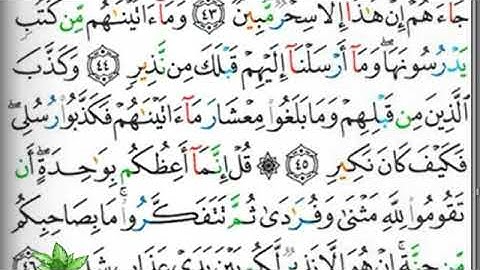 جَآءَهُمْ إِنْ هَٰذَآ إِلَّا سِحْرٌ مُّبِينٌ ﴿٤٣﴾ وَمَآ ءَاتَيْنَٰهُم مِّن كُتُبٍ
يَدْرُسُونَهَا ۖ وَمَآ أَرْسَلْنَآ إِلَيْهِمْ قَبْلَكَ مِن نَّذِيرٍ ﴿٤٤﴾ وَكَذَّبَ
ٱلَّذِينَ مِن قَبْلِهِمْ وَمَا بَلَغُوا۟ مِعْشَارَ مَآ ءَاتَيْنَٰهُمْ فَكَذَّبُوا۟ رُسُلِى ۖ
فَكَيْفَ كَانَ نَكِيرِ ﴿٤٥﴾ ۞ قُلْ إِنَّمَآ أَعِظُكُم بِوَٰحِدَةٍ ۖ أَن
تَقُومُوا۟ لِلَّهِ مَثْنَىٰ وَفُرَٰدَىٰ ثُمَّ تَتَفَكَّرُوا۟ ۚ مَا بِصَاحِبِكُم
مِّن جِنَّةٍ ۚ إِنْ هُوَ إِلَّا نَذِيرٌ لَّكُم بَيْنَ يَدَىْ عَذَابٍ شَدِيدٍ ﴿٤٦﴾